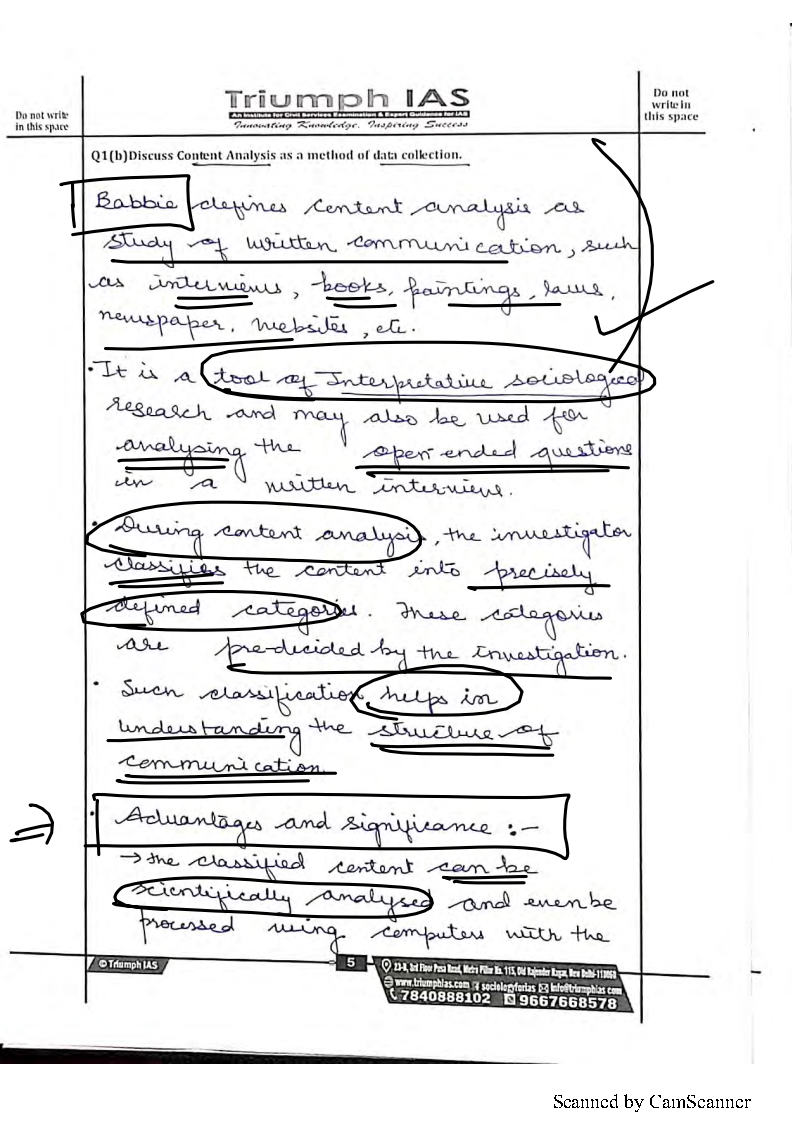 Triumph IAS
An Institute for Civil Services Examination & Expert Guidance for IAS
Innovating Knowledge, Inspiring Success
Do not write
in this space
Do not
write in
this space
Q1(b)Discuss Content Analysis as a method of data collection.
Babbie defines content analysis as
study of written communication, such
as interviews, books, paintings, laws,
newspaper, websites, etc.
• It is a tool of Interpretative sociological
research and may also be used for
analysing the open-ended questions
in a written interview.
• During content analysis, the investigator
classifies the content into precisely
defined categories. These categories
are pre-decided by the investigation.
• Such classification helps in
understanding the structure of
communication
• Advantages and significance :-
→ the classified content can be
scientifically analysed and even be
processed using computers with the
© Triumph IAS
5
23-B, 3rd Floor Pusa Road, Metro Pillar No. 115, Old Rajender Nagar, New Delhi-110060
www.triumphias.com sociologyforias info@triumphias.com
7840888102 9667668578
Scanned by CamScanner